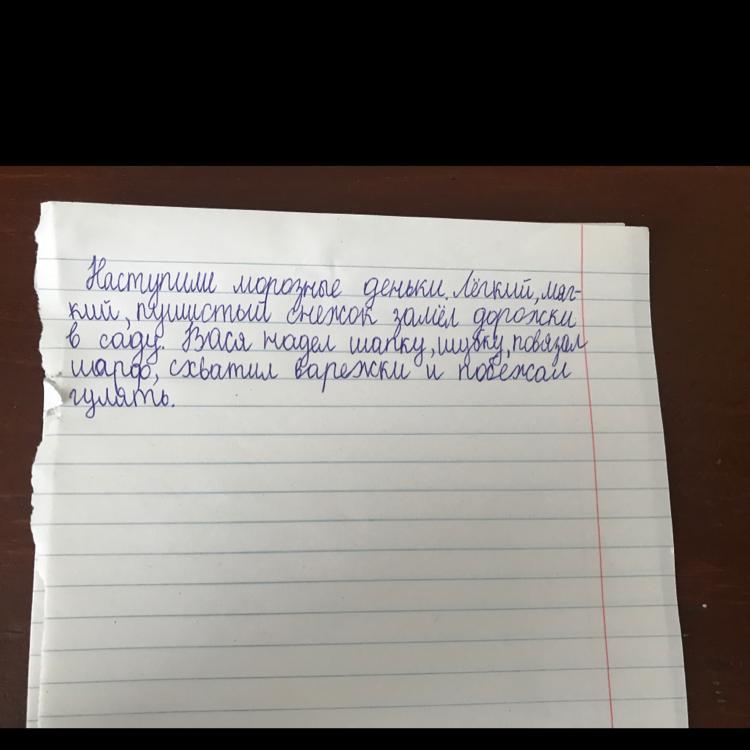 Наступили морозные деньки. Лёгкий, мяг-
кий, пушистый снежок замёл дорожки
в саду. Вася надел шапку, шубку, повязал
шарф, схватил варежки и побежал
гулять.